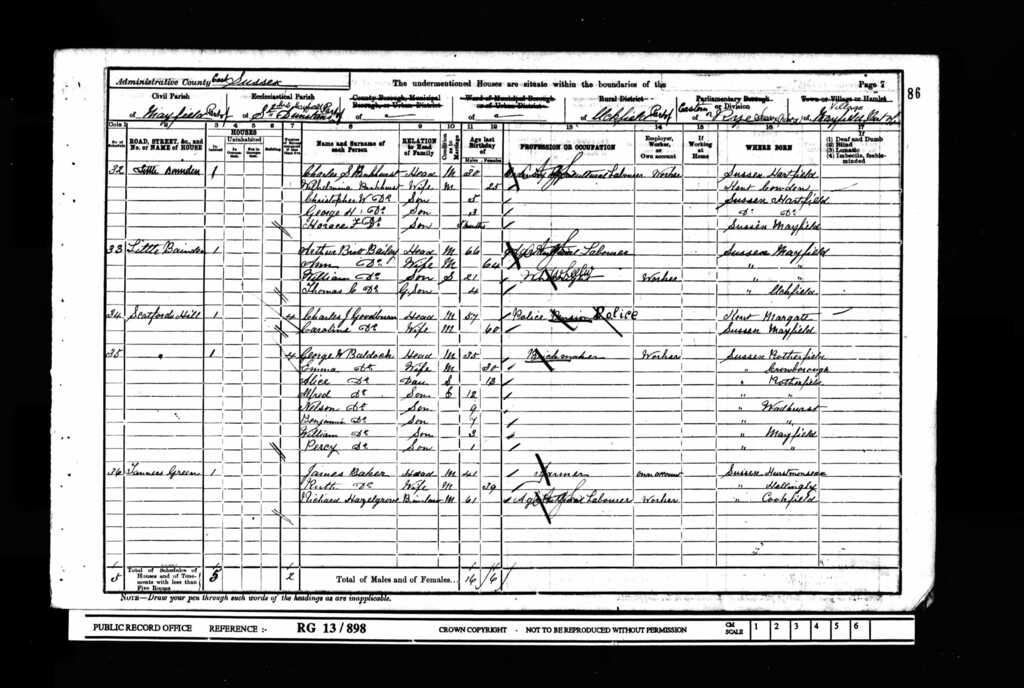 Administrative County East Sussex
The undermentioned Houses are situate within the boundaries of the
Page 7
86
Civil Parish
Ecclesiastical Parish
County Borough, Municipal Borough, or Urban District
Ward of Municipal Borough or of Urban District
Rural District
Parliamentary Borough or Division
Town or Village or Hamlet
of Mayfield Part of
of St Dunstans
of
of
of Uckfield Part of
of Eastern or Rye
of Mayfield Part of
Village
Cols 1 2 3 4 5 6 7 8 9 10 11 12 13 14 15 16 17
No. of Schedule
ROAD, STREET, &c., and No. or NAME of HOUSE
HOUSES
Inhabited
Uninhabited
Building
Name and Surname of each Person
RELATION to Head of Family
Condition as to Marriage
Age last Birthday of
Males
Females
PROFESSION OR OCCUPATION
Employer, Worker, or Own account
If Working at Home
WHERE BORN
If
(1) Deaf and Dumb
(2) Blind
(3) Lunatic
(4) Imbecile, feeble-minded
32 Little Bainden 1 Charles S Parkhurst Head M 30 Agricultural Labourer Worker Sussex Hartfield
Wilhelmina Parkhurst Wife M 25 Kent Cowden
Christopher W Do Son 5 Sussex Hartfield
George H Do Son 3 Do Do
Horace F Do Son 8 months Sussex Mayfield
33 Little Bainden 1 Arthur Bailey Head M 66 Labourer Sussex Mayfield
Ann Do Wife M 64 " "
William Do Son S 21 Worker " "
Thomas C Do G. Son 4 " Uckfield
34 Scotford Hill 1 4 Charles J Goodburn Head M 57 Police Pension Police Kent Margate
Caroline Do Wife M 60 Sussex Mayfield
35 " 1 4 George W Baldock Head M 35 Brickmaker Worker Sussex Rotherfield
Emma Do Wife M 30 " Crowborough
Alice Do Dau S 13 " Rotherfield
Alfred Do Son 12 " "
Nelson Do Son 9 " Wadhurst
Benjamin Do Son 7 " "
William Do Son 3 " Mayfield
Percy Do Son 1 " "
36 Tanners Green 1 James Baker Head M 41 Farmer Own account Sussex Hurstmonseux
Ruth Do Wife M 39 " Hellingly
Richard Hazelgrove M 61 Labourer Worker " Cockfield
5 Total of Schedules of Houses and of Tenements with less than Five Rooms 5 2 Total of Males and of Females... 16 6
NOTE—Draw your pen through such words of the headings as are inapplicable.
PUBLIC RECORD OFFICE REFERENCE :- RG 13/898 CROWN COPYRIGHT - NOT TO BE REPRODUCED WITHOUT PERMISSION CM SCALE 1 2 3 4 5 6